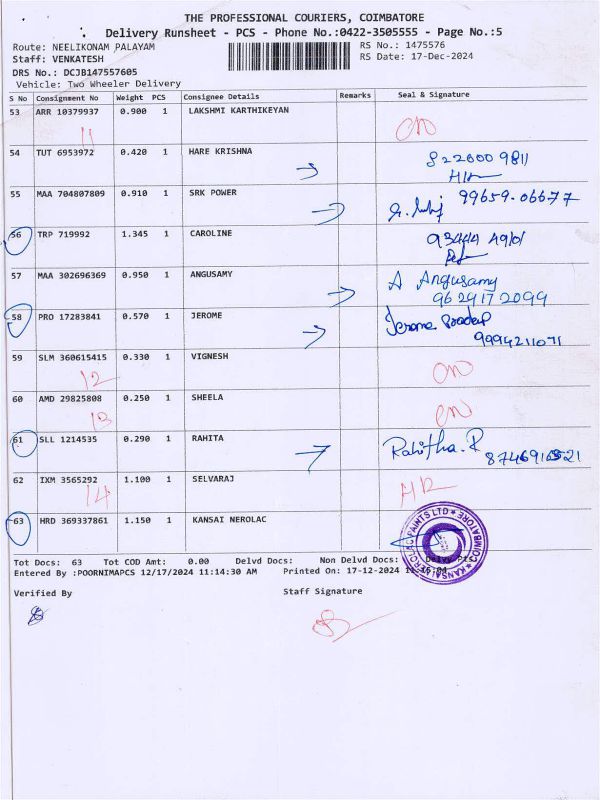 THE PROFESSIONAL COURIERS, COIMBATORE
Delivery Runsheet - PCS - Phone No.:0422-3505555 - Page No.:5
Route: NEELIKONAM PALAYAM RS No.: 1475576
Staff: VENKATESH RS Date: 17-Dec-2024
DRS No.: DCJB147557605
Vehicle: Two Wheeler Delivery
S No Consignment No Weight PCS Consignee Details Remarks Seal & Signature
53 ARR 10379937 0.900 1 LAKSHMI KARTHIKEYAN
11
54 TUT 6953972 0.420 1 HARE KRISHNA
822000 9811
55 MAA 704807809 0.910 1 SRK POWER 99659.06677
56 TRP 719992 1.345 1 CAROLINE 93444 49101
57 MAA 302696369 0.950 1 ANGUSAMY A Angusamy
9629172099
58 PRO 17283841 0.570 1 JEROME Jerome
9994211071
59 SLM 360615415 0.330 1 VIGNESH
12
60 AMD 29825808 0.250 1 SHEELA
13
61 SLL 1214535 0.290 1 RAHITA Rahitha.R
62 IXM 3565292 1.100 1 SELVARAJ
14
63 HRD 369337861 1.150 1 KANSAI NEROLAC
KANSAI NEROLAC PAINTS LTD ★ COIMBATORE ★
Tot Docs: 63 Tot COD Amt: 0.00 Delvd Docs: Non Delvd Docs:
Entered By :POORNIMAPCS 12/17/2024 11:14:30 AM Printed On: 17-12-2024
Verified By Staff Signature